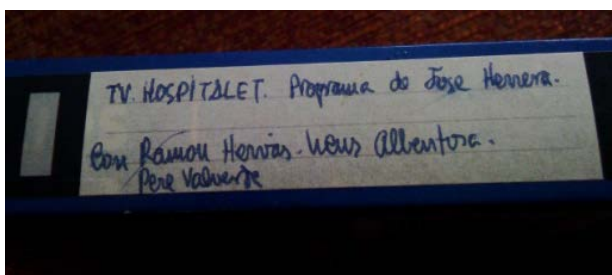 TV. HOSPITALET. Programa de Jose Herrera.
Con Ramon Hervás. Neus Albentosa.
Pere Valverde